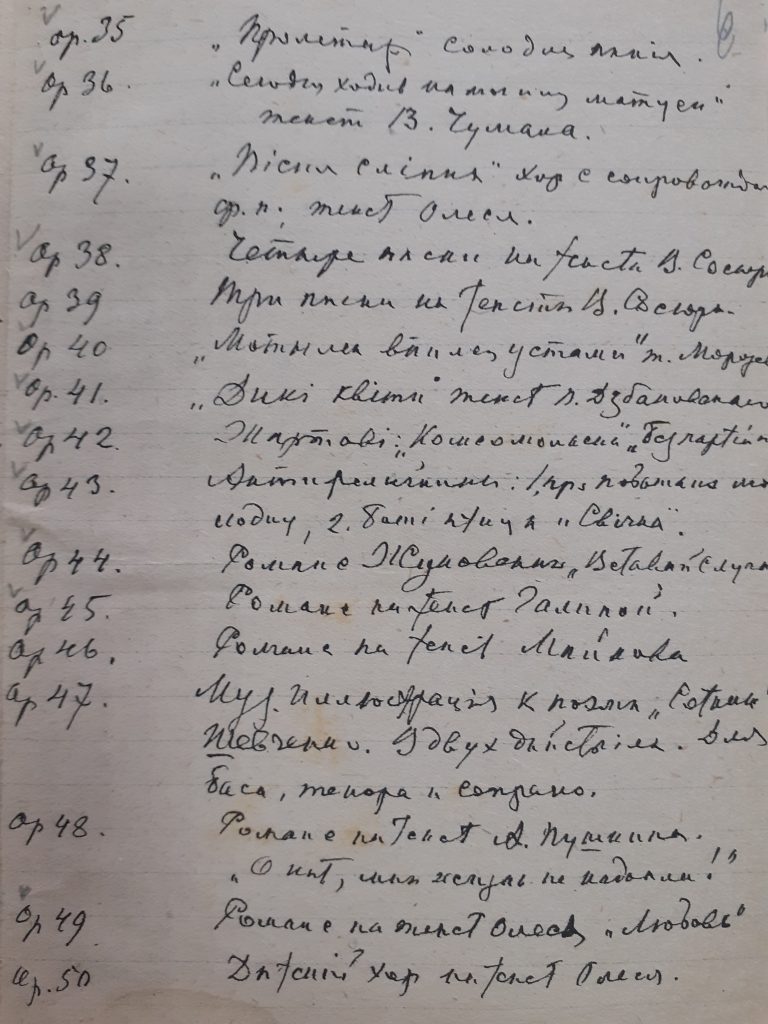 ор. 35 „Пролетар" солоспів.
ор 36. „Сегодня ходив на могилу матуси"
текст В. Чумака.
ор 37. „Пісня сліпих" хор с сопровожден
ф.п. текст Олеся.
ор 38. Четыре песни на текст В. Сосюр
ор 39 Три песни на текст В. Сосюр.
ор 40 „Мотылек впился устами" т.
ор. 41. „Дикі квіти" текст Дзбановского
ор 42. Жартові: „Комсомольська" „Безпартійн
ор 43. Антирелигийны: 1, про попа та
2. „Свічка".
ор 44. Романс Жуковский „Вставай
ор 45. Романс на текст Галиной.
ор 46. Романс на текст Майкова
ор 47. Муз. иллюстрація к поэмі „Сотник"
Шевченко. В двух дійствіях. Для
баса, тенора и сопрано.
ор 48. Романс на текст А. Пушкина.
„О нет, мне жизнь не надоела!"
ор 49 Романс на текст Олеся „Любовь"
ор. 50 Дитский хор на текст Олеся.